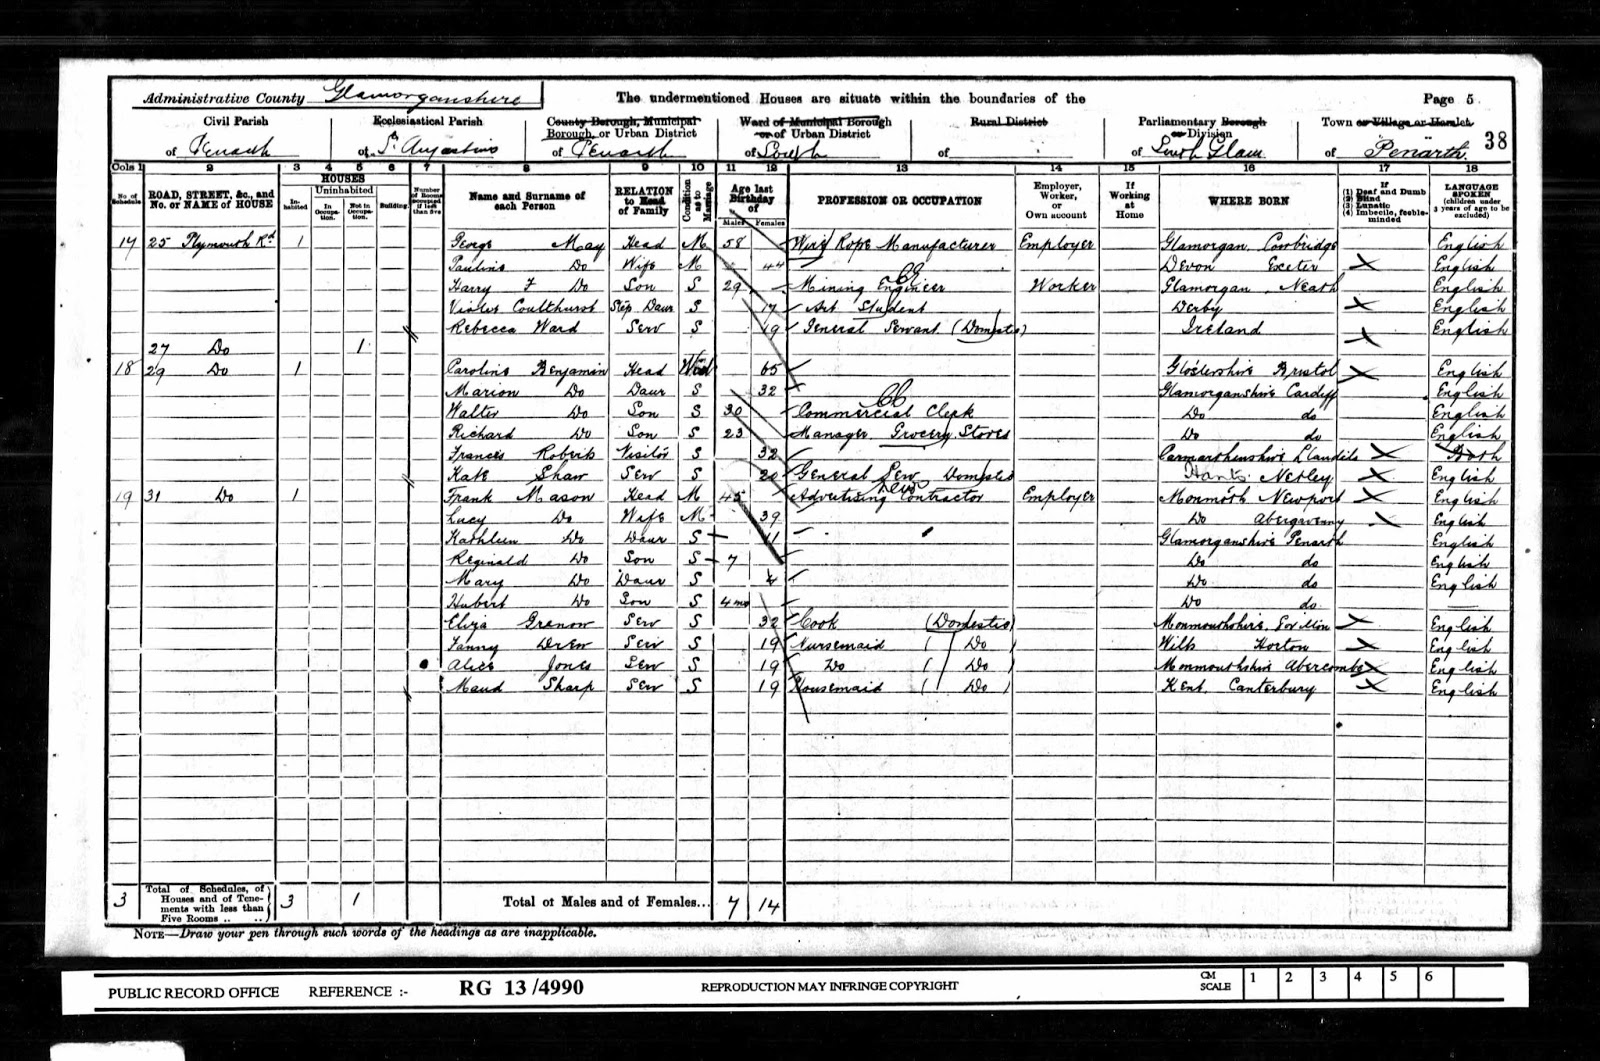 Administrative County Glamorganshire
The undermentioned Houses are situate within the boundaries of the
Page 5
Civil Parish of Penarth
Ecclesiastical Parish of St Augustins
County Borough, Municipal Borough, or Urban District of Penarth
Ward of Municipal Borough or of Urban District of South
Rural District of
Parliamentary Borough or Division of South Glam
Town or Village or Hamlet of Penarth
38
Cols 1 2 3 4 5 6 7 8 9 10 11 12 13 14 15 16 17 18
No. of Schedule
ROAD, STREET, &c., and No. or NAME of HOUSE
HOUSES
Inhabited
Uninhabited
In Occupation.
Not in Occupation.
Building
Number of Rooms occupied if less than five
Name and Surname of each Person
RELATION to Head of Family
Condition as to Marriage
Age last Birthday of
Males
Females
PROFESSION OR OCCUPATION
Employer, Worker, or Own account
If Working at Home
WHERE BORN
If (1) Deaf and Dumb (2) Blind (3) Lunatic (4) Imbecile, feeble-minded
LANGUAGE SPOKEN (children under 3 years of age to be excluded)
17 25 Plymouth Rd 1 George May Head M 58 Wire Rope Manufacturer Employer Glamorgan Cowbridge English
Pauline Do Wife M 44 Devon Exeter English
Harry F Do Son S 29 Mining Engineer Worker Glamorgan Neath English
Violet Coulthurst Step Daur S 17 Art Student Derby English
Rebecca Ward Serv S 19 General Servant (Domestic) Ireland English
27 Do 1
18 29 Do 1 Caroline Benjamin Head Wid 65 Glostershire Bristol English
Marion Do Daur S 32 Glamorganshire Cardiff English
Walter Do Son S 30 Commercial Clerk Do do English
Richard Do Son S 23 Manager Grocery Stores Do do English
Frances Roberts Visitor S 32 Carmarthenshire Llandilo Both
Kate Shaw Serv S 20 General Serv Domestic Hants Netley English
19 31 Do 1 Frank Mason Head M 45 Advertising Contractor Employer Monmoth Newport English
Lucy Do Wife M 39 Do Abergavenny English
Kathleen Do Daur S 11 Glamorganshire Penarth English
Reginald Do Son S 7 Do do English
Mary Do Daur S 4 Do do English
Hubert Do Son S 4 mo Do do
Eliza Grenow Serv S 32 Cook (Domestic) Monmouthshire English
Fanny Drew Serv S 19 Nursemaid (Do) Wilts Horton English
Alice Jones Serv S 19 Do (Do) Monmouthshire English
Maud Sharp Serv S 19 Housemaid (Do) Kent Canterbury English
3 Total of Schedules, of Houses and of Tenements with less than Five Rooms .. .. 3 1 Total of Males and of Females... 7 14
NOTE—Draw your pen through such words of the headings as are inapplicable.
PUBLIC RECORD OFFICE REFERENCE :- RG 13/4990 REPRODUCTION MAY INFRINGE COPYRIGHT CM SCALE 1 2 3 4 5 6